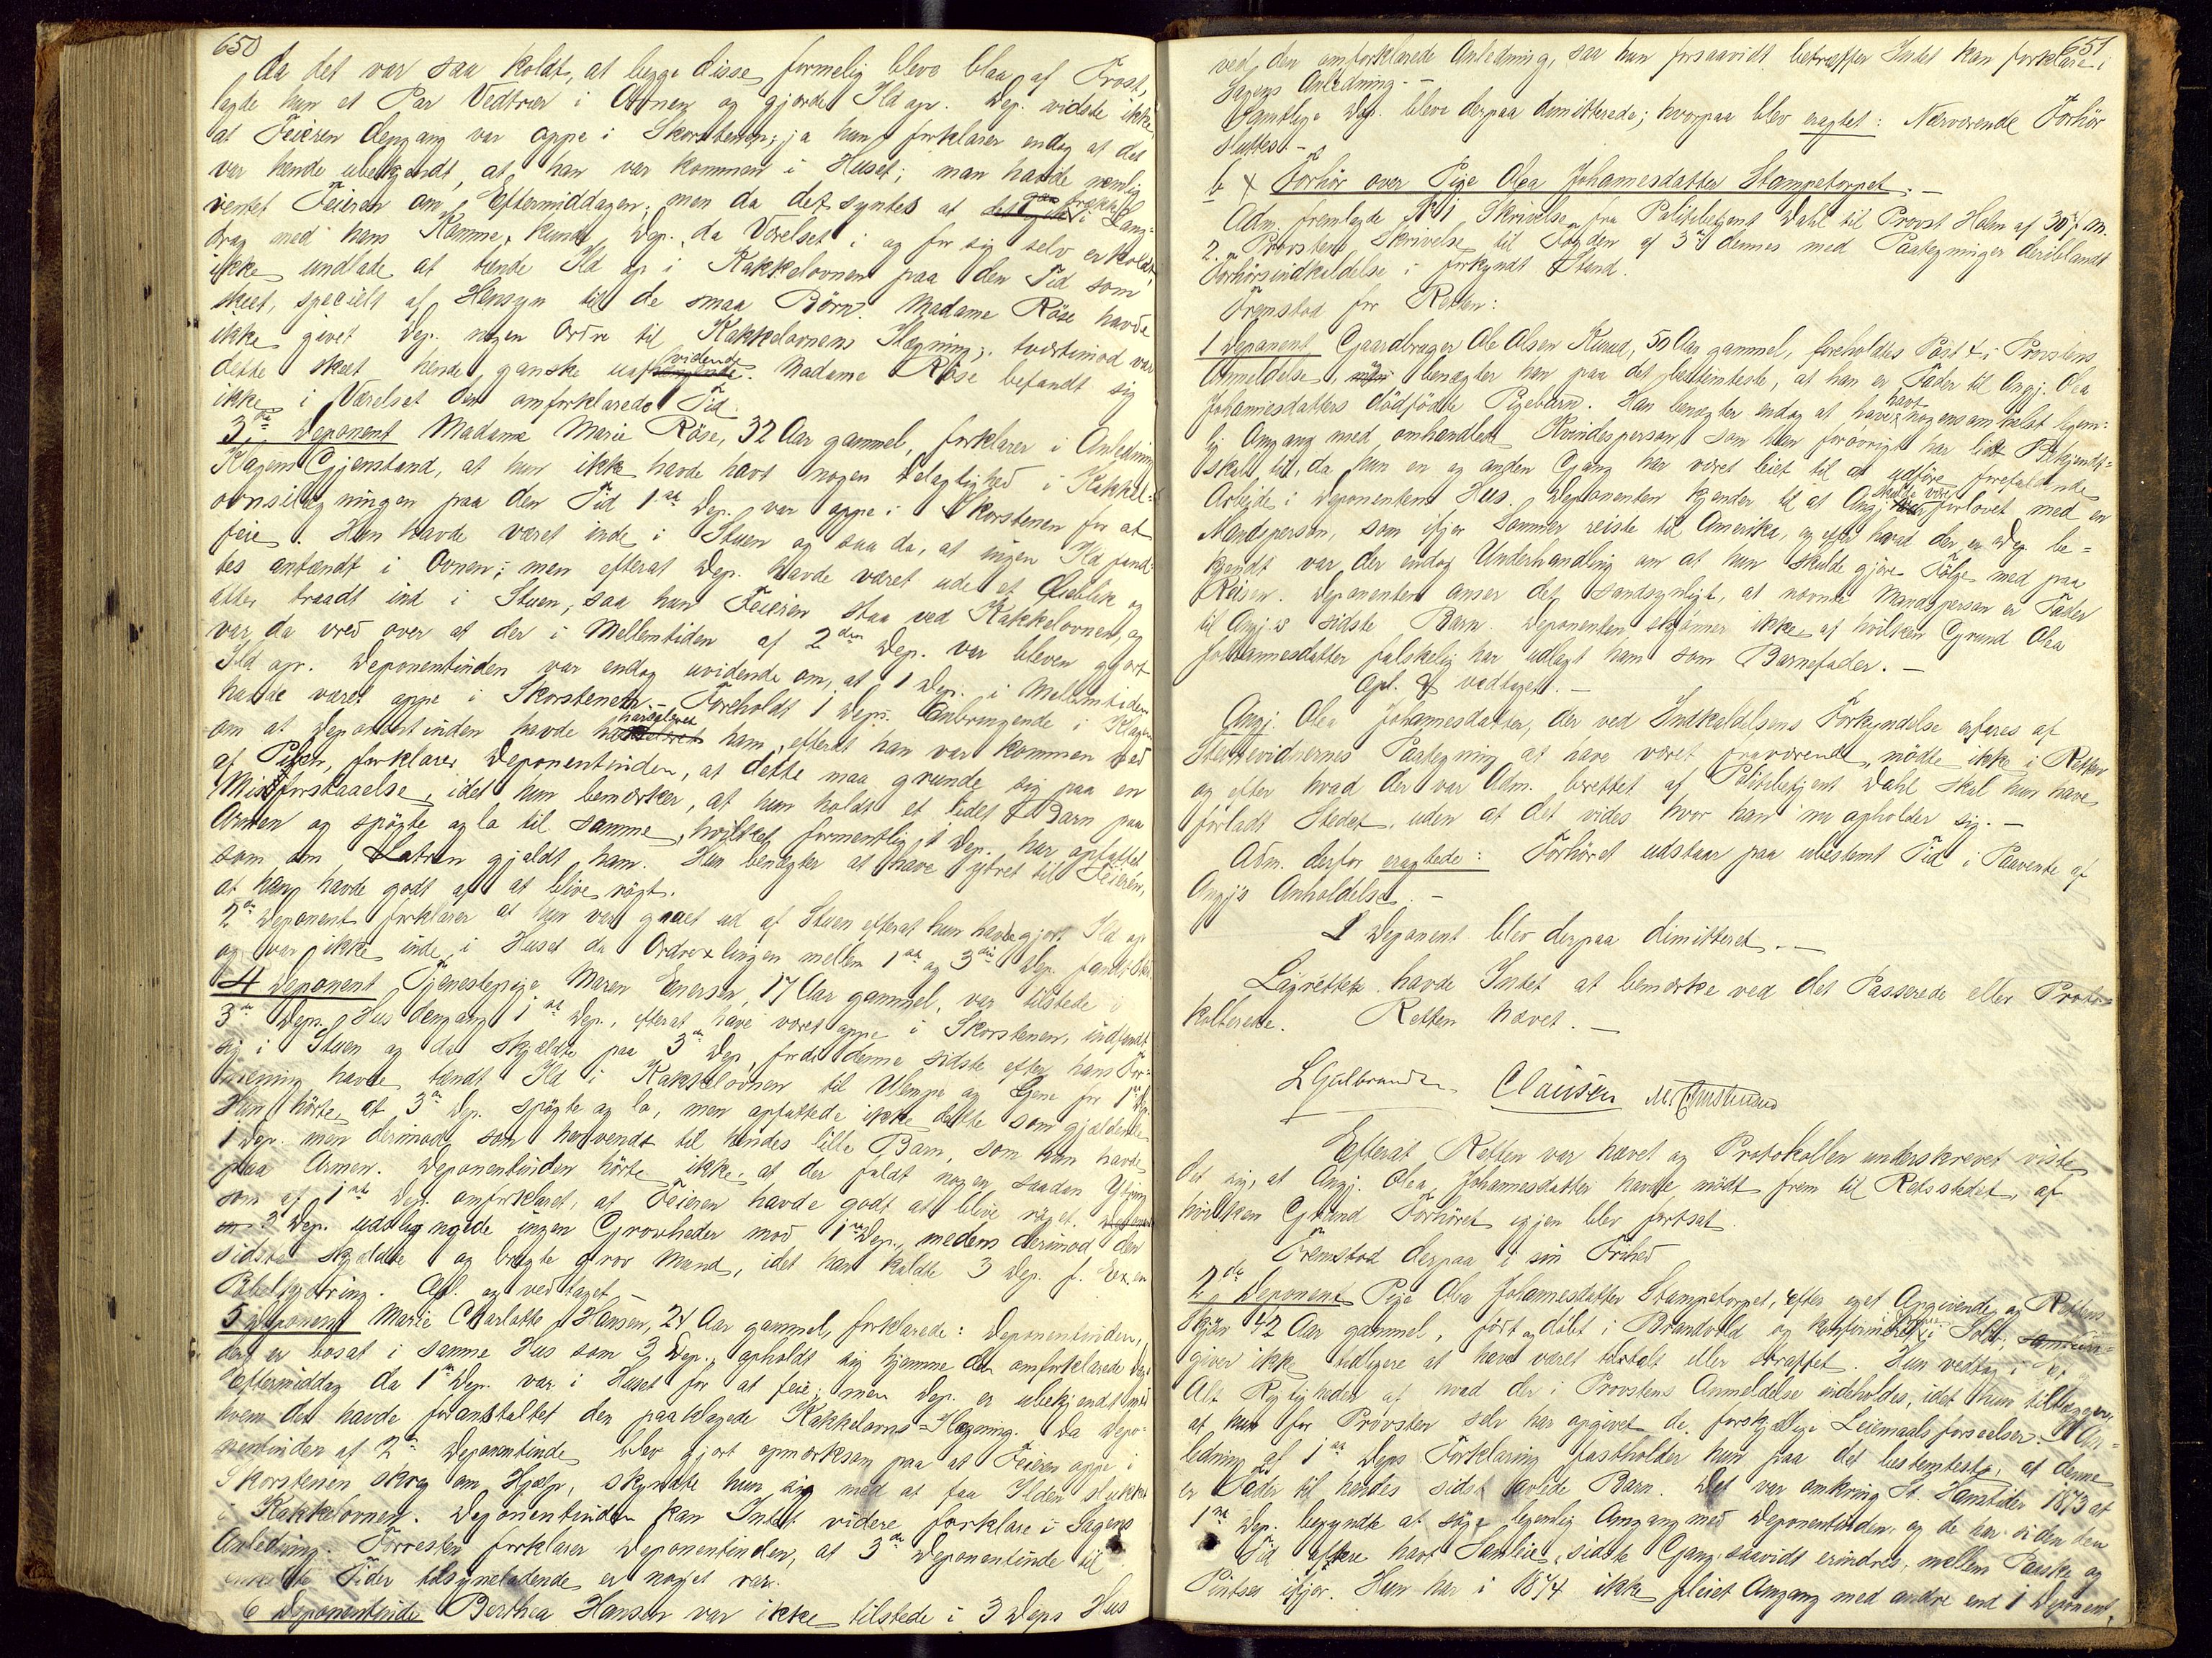 650
da det var saa koldt, at begge disse formelig bleve blaa af Frost,
lagde hun et Par Vedtrær i Ovnen og gjorde Ild op. Dep. vidste ikke
at Feieren dengang var oppe i Skorstenen; ja hun forklarer endog at det
var hende ubekjendt, at han var kommen i Huset; man havde nemlig
ventet Feieren om Eftermiddagen; men da det syntes at trække i Lang-
drag med hans Komme, kunde Dep., da Værelset i og for sig selv er koldt,
ikke undlade at tænde Ild op i Kakkelovnen paa den Tid som
skeet, specielt af Hensyn til de smaa Børn. Madame Röse havde
ikke givet Dep. nogen Ordre til Kakkelovnens Ilægning; tvertimod var
dette skeet hende ganske uafvidende. Madame Röse befandt sig
ikke i Værelset den omforklarede Tid.
3die Deponent Madame Marie Röse, 32 Aar gammel, forklarer i Anledning
Klagens Gjenstand, at hun ikke havde havt nogen Delagtighed i Kakkel-
ovnsilægningen paa den Tid 1ste Dep. var oppe i Skorstenen for at
feie. Hun havde været inde i Stuen og saa da, at ingen Ild fand-
tes antændt i Ovnen; men efterat Dep. havde været ude et Øieblik og
atter traadt ind i Stuen, saa hun Feieren staa ved Kakkelovnen, og
var da vred over at der i Mellemtiden af 2den Dep. var bleven gjort
Ild op. Deponentinden var endog uvidende om, at 1 Dep. i Mellemtiden
havde været oppe i Skorstenen. – Foreholdt 1 Deps. Anbringende i Klagen
om at Deponentinden havde ham, efterat han var kommen ned
af Piben, forklarer Deponentinden, at dette maa grunde sig paa en
Misforstaaelse, idet hun bemærker, at hun holdt et lidet Barn paa
Armen og spögte og lo til samme, hvilket formentlig 1 Dep. har opfattet
som om Latren gjaldt ham. Hun benægter at have ytret til Feieren,
at han havde godt af at blive rögt.
2den Deponent forklarer at hun var gaaet ud af Stuen efterat hun havde gjort Ild op
og var ikke inde i Huset da Ordvexlingen mellem 1ste og 3die Dep. fandt Sted.
4 Deponent Tjenestepige Maren Enersen, 17 Aar gammel, var tilstede i
3die Deps. Hus dengang 1ste Dep., efterat have været oppe i Skorstenen, indfandt
sig i Stuen og da skjældte paa 3die Dep, fordi denne sidste efter hans For-
mening havde tændt Ild i Kakkelovnen til Ulempe og Gene for 1ste Dep.
Hun hörte at 3die Dep. spögte og lo, men opfattede ikke dette som gjældende
1 Dep. men derimod som henvendt til hendes lille Barn, som hun havde
paa Armen. Deponentinden hörte ikke, at der faldt nogen saadan Ytring
som af 1ste Dep. omforklaret, at Feieren havde godt af at blive röget.
3 Dep. udslyngede ingen Grovheder mod 1ste Dep., medens derimod den
sidste skjældte og brugte grov Mund, idet han kaldte 3 Dep. f. Ex. en
Opl. og vedtaget. –
5 Deponent Marie Charlotte Hansen, 24 Aar gammel, forklarede: Deponentinden,
der er bosat i samme Hus som 3 Dep., opholdt sig hjemme den omforklarede Dags
Eftermiddag da 1ste Dep. var i Huset for at feie; men Dep. er ubekjendt med
hvem der havde foranstaltet den paaklagede Kakkelovns-Ilægning. Da Depo-
nentinden af 2den Deponentinde blev gjort opmærksom paa at Feieren oppe i
Skorstenen skreg om Hjælp, skyndte hun sig med at faa Ilden slukket
i Kakkelovnen. Deponentinden kan Intet videre forklare i Sagens
Anledning. Forresten forklarer Deponentinden, at 3die Deponentinde til
Tider tilsyneladende er noget rar.
6 Deponentinde Berthea Hansen var ikke tilstede i 3 Deps Hus
651
ved den omforklarede Anledning, saa hun forsaavidt betræffer Intet kan forklare i
Sagens Anledning. –
Samtlige Dep. bleve derpaa dimitterede; hvorpaa blev eragtet: Nærværende Forhör
sluttes. –
b x Forhör over Pige Olea Johannesdatter Stampetorpet. –
Adm. fremlagde No 1 Skrivelse fra Politibetjent Dahl til Provst Holm af 30te f. M.
2. Provstens Skrivelse til Fogden af 3die dennes med Paategninger deriblandt
Forhörsindkaldelse i forkyndt Stand.
Fremstod for Retten:
1 Deponent Gaardbruger Ole Olsen Kurud, 50 Aar gammel, foreholdtes Post 4 i Provstens
Anmeldelse, benægter han paa det bestemteste, at han er Fader til Angj. Olea
Johannesdatters dödfödte Pigebarn. Han benægter endog at have havt nogensomhelst legem-
lig Omgang med omhandlede Kvindesperson, som han forövrigt har lidt Bekjendt-
skab til, da hun en og anden Gang har været leiet til at udföre forefaldende
Arbeide i Deponentens Hus. Deponenten kjender til at Angj. skulde være forlovet med en
Mandsperson, som ifjor Sommer reiste til Amerika, og efter hvad der er Dep. be-
kjendt var der endog Underhandling om at hun skulde gjöre Fölge med paa
Reisen. Deponenten anser det sandsynligt, at nævnte Mandsperson er Fader
til Angj.s sidste Barn. Deponenten skjönner ikke af hvilken Grund Olea
Johannesdatter falskelig har udlagt ham som Barnefader. –
Opl. & vedtaget. –
Angj. Olea Johannesdatter, der ved Indkaldelsens Forkyndelse erfares af
Stevnevidnernes Paategning at have været fraværende, mödte ikke i Retten
og efter hvad der var Adm. berettet af Politibetjent Dahl skal hun have
forladt Stedet, uden at det vides hvor han nu opholder sig. –
Adm. derfor eragtede: Forhöret udstaar paa ubestemt Tid i Paavente af
Angjs Anholdelse. –
1 Deponent blev derpaa dimitteret. –
Lagrettet havde Intet at bemærke ved det Passerede eller Proto-
kollerede. Retten hævet. –
LGulbrandsen Clausen M. Christensen
Efterat Retten var hævet og Protokollen underskrevet viste
det sig, at Angj. Olea Johannesdatter havde mödt frem til Retsstedet, af
hvilken Grund Forhöret igjen blev fortsat
Fremstod derpaa i sin Frihed
2den Deponent Pige Olea Johannesdatter Stampetorpet, efter eget Angivende og Rettens
Skjön 42 Aar gammel, födt og döbt i Brandvold og konfirmeret i Solör;
giver ikke tidligere at have været tiltalt eller straffet. Hun vedtog i Et
Alt Rigtigheden af hvad der i Provstens Anmeldelse indeholdes, idet hun tillægger,
at hun for Provsten selv har opgivet de forskjellige Leiermaalsforseelser. I An-
ledning af 1ste Deps Forklaring fastholder hun paa det bestemteste, at denne
er Fader til hendes sidst avlede Barn. Det var omkring St. Hanstider 1873 at
1ste Dep. begyndte at söge legemlig Omgang med Deponentinden og de har siden den
Tid oftere havt Samleie, sidste Gang, saavidt erindres, mellem Paaske og
Pintse ifjor. Hun har i 1874 ikke pleiet Omgang med andre end 1 Deponent,